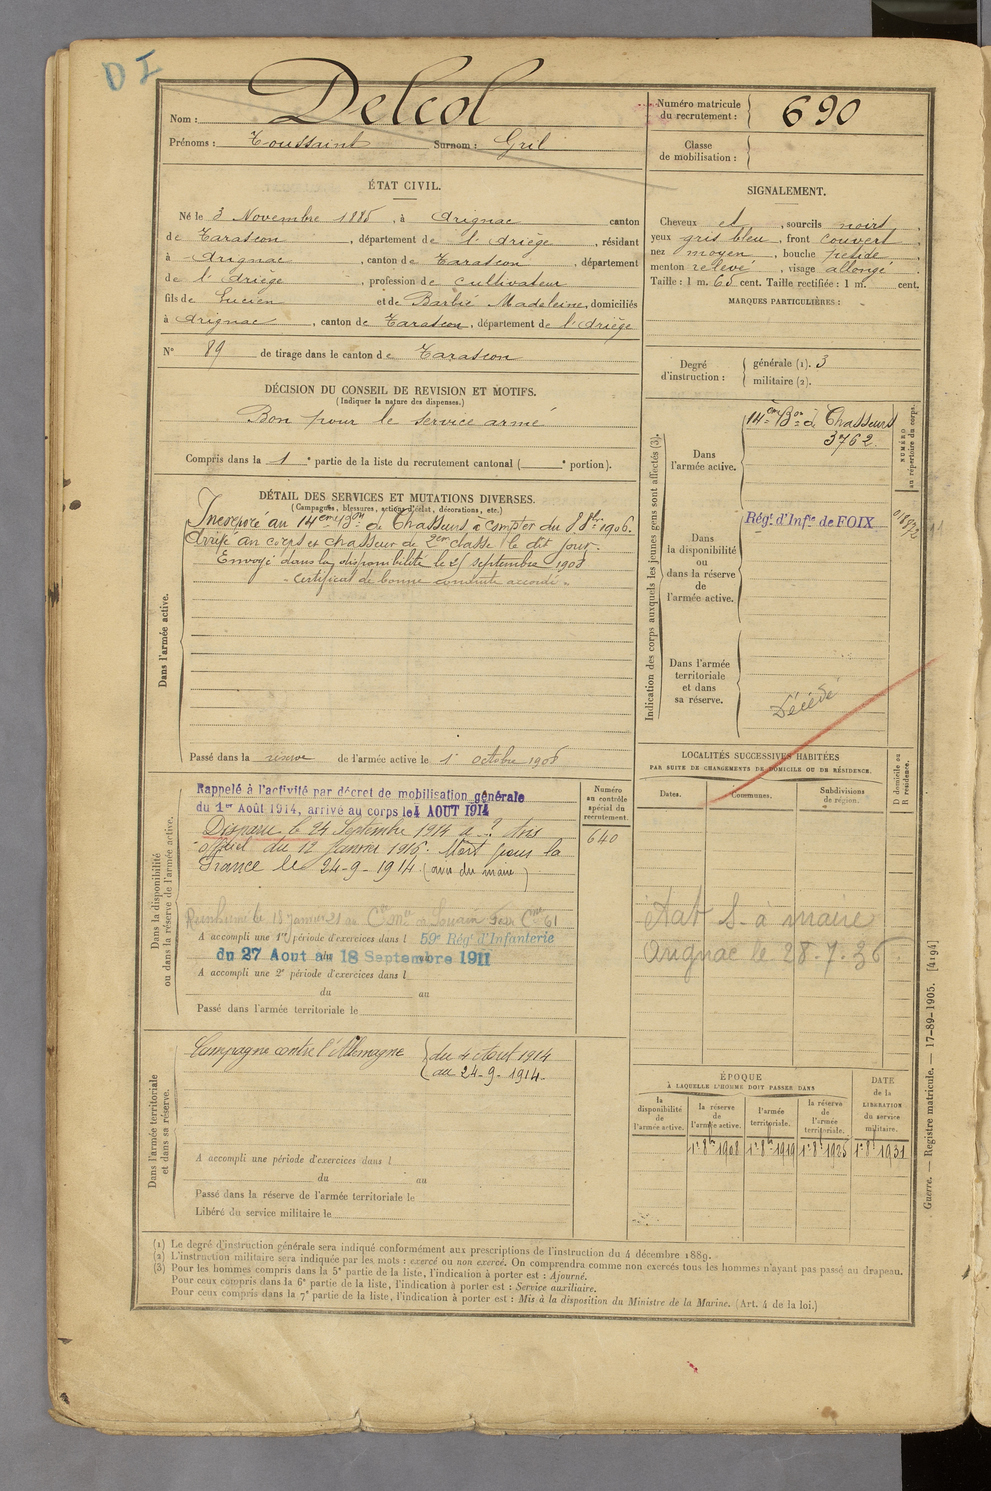 D I
Nom : Delcol
Prénoms : Toussaint Surnom : Gril
Numéro matricule du recrutement : 690
Classe de mobilisation :
ÉTAT CIVIL.
Né le 3 Novembre 1885, à Arignac canton
de Tarascon, département de l'Ariège, résidant
à Arignac, canton de Tarascon, département
de l'Ariège, profession de cultivateur
fils de Lucien et de Barbié Madeleine, domiciliés
à Arignac, canton de Tarascon, département de l'Ariège
N° 89 de tirage dans le canton de Tarascon
DÉCISION DU CONSEIL DE REVISION ET MOTIFS.
(Indiquer la nature des dispenses.)
Bon pour le service armé
Compris dans la 1e partie de la liste du recrutement cantonal (e portion).
DÉTAIL DES SERVICES ET MUTATIONS DIVERSES.
(Campagnes, blessures, actions d'éclat, décorations, etc.)
Incorporé au 14ème Bon de Chasseurs à compter du 8 8bre 1906.
Arrivé au corps et chasseur de 2ème classe le dit jour.
Envoyé dans la disponibilité le 25 septembre 1908
- Certificat de bonne conduite accordé -
Dans l'armée active.
Passé dans la réserve de l'armée active le 1er octobre 1908
Dans la disponibilité ou dans la réserve de l'armée active.
Rappelé à l'activité par décret de mobilisation générale
du 1er Août 1914, arrivé au corps le 4 AOUT 1914
Disparu le 24 Septembre 1914 à ? Avis
officiel du 12 Janvier 1916. Mort pour la
France le 24-9-1914 (avis du maire)
Réinhumé le 18 Janvier 21 au Cre Mre de Souain
A accompli une 1re période d'exercices dans l 59e Régt d'Infanterie
du 27 Aout au 18 Septembre 1911
A accompli une 2e période d'exercices dans l
du au
Passé dans l'armée territoriale le
Dans l'armée territoriale et dans sa réserve.
Campagne contre l'Allemagne du 4 Aout 1914
au 24-9-1914.
A accompli une période d'exercices dans l
du au
Passé dans la réserve de l'armée territoriale le
Libéré du service militaire le
Numéro au contrôle spécial du recrutement.
640
SIGNALEMENT.
Cheveux et, sourcils noirs,
yeux gris bleu, front couvert,
nez moyen, bouche petite,
menton relevé, visage allongé.
Taille : 1 m. 65 cent. Taille rectifiée : 1 m. cent.
MARQUES PARTICULIÈRES :
Degré d'instruction : générale (1). 3
militaire (2).
Indication des corps auxquels les jeunes gens sont affectés (3).
NUMÉRO au répertoire du corps.
Dans l'armée active.
14ème Bon de Chasseurs
3762
Dans la disponibilité ou dans la réserve de l'armée active.
Régt d'Infie de FOIX
Dans l'armée territoriale et dans sa réserve.
Décédé
LOCALITÉS SUCCESSIVES HABITÉES
PAR SUITE DE CHANGEMENTS DE DOMICILE OU DE RÉSIDENCE.
Dates. Communes. Subdivisions de région.
D domicile ou R résidence.
Etat S. à maire
Arignac le 28-7-36
ÉPOQUE
À LAQUELLE L'HOMME DOIT PASSER DANS
la disponibilité de l'armée active.
la réserve de l'armée active.
l'armée territoriale.
la réserve de l'armée territoriale.
DATE de la LIBÉRATION du service militaire.
1er 8bre 1908 1er 8bre 1919 1er 8bre 1925 1er 8bre 1931
Guerre. — Registre matricule. — 17-89-1905. [4194]
(1) Le degré d'instruction générale sera indiqué conformément aux prescriptions de l'instruction du 4 décembre 1889.
(2) L'instruction militaire sera indiquée par les mots : exercé ou non exercé. On comprendra comme non exercés tous les hommes n'ayant pas passé au drapeau.
(3) Pour les hommes compris dans la 5e partie de la liste, l'indication à porter est : Ajourné.
Pour ceux compris dans la 6e partie de la liste, l'indication à porter est : Service auxiliaire.
Pour ceux compris dans la 7e partie de la liste, l'indication à porter est : Mis à la disposition du Ministre de la Marine. (Art. 4 de la loi.)